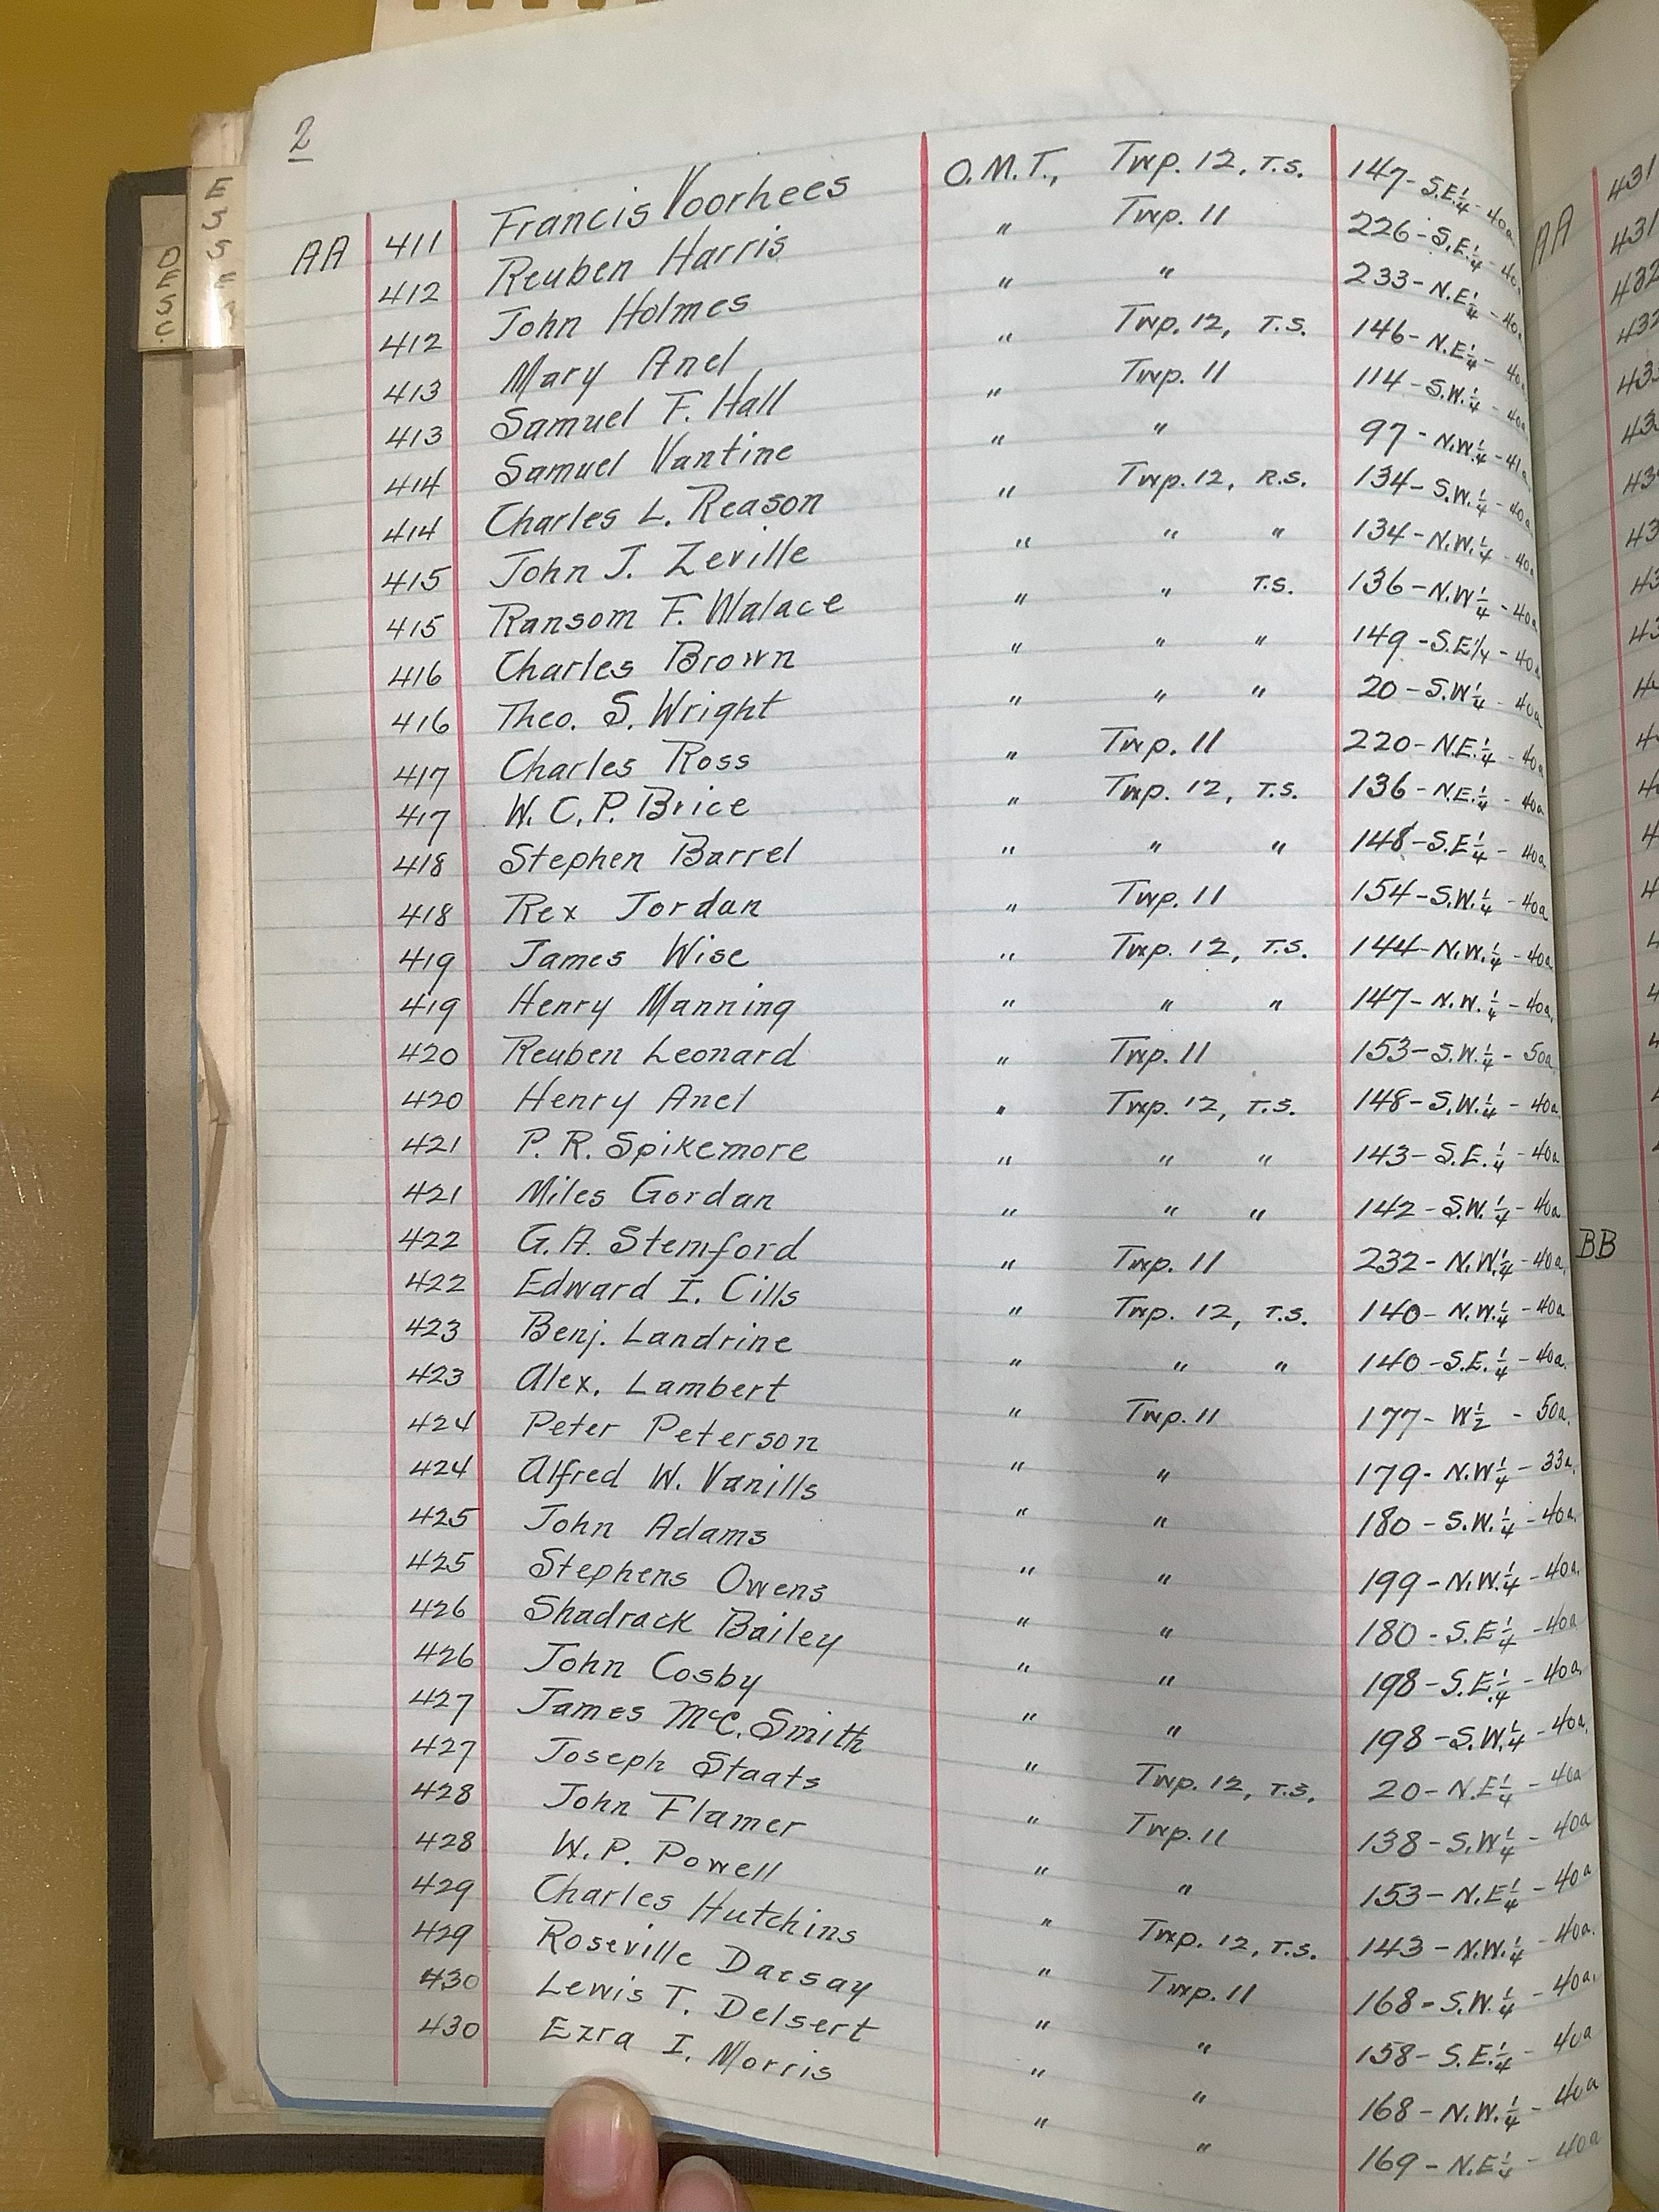 2
AA 411 Francis Voorhees O.M.T., Twp. 12, T.S. 147-S.E.¼-40a
412 Reuben Harris " Twp. 11 226-S.E.¼-40a
412 John Holmes " " 233-N.E.¼-40a
413 Mary Anel " Twp. 12, T.S. 146-N.E.¼-40a
413 Samuel F. Hall " Twp. 11 114-S.W.¼-40a
414 Samuel Vantine " " 97-N.W.¼-41a
414 Charles L. Reason " Twp. 12, R.S. 134-S.W.¼-40a
415 John J. Zeville " " " 134-N.W.¼-40a
415 Ransom F. Walace " " T.S. 136-N.W.¼-40a
416 Charles Brown " " " 149-S.E.1/4-40a
416 Theo. S. Wright " " " 20-S.W.¼-40a
417 Charles Ross " Twp. 11 220-N.E.¼-40a
417 W.C.P. Brice " Twp. 12, T.S. 136-N.E.¼-40a
418 Stephen Barrel " " " 148-S.E.¼-40a
418 Rex Jordan " Twp. 11 154-S.W.¼-40a
419 James Wise " Twp. 12, T.S. 144-N.W.¼-40a
419 Henry Manning " " " 147-N.W.¼-40a.
420 Reuben Leonard " Twp. 11 153-S.W.¼-50a
420 Henry Anel " Twp. 12, T.S. 148-S.W.¼-40a
421 P. R. Spikemore " " " 143-S.E.¼-40a
421 Miles Gordan " " " 142-S.W.¼-40a
422 G.A. Stemford " Twp. 11 232-N.W.¼-40a.
422 Edward I. Cills " Twp. 12, T.S. 140-N.W.¼-40a
423 Benj. Landrine " " " 140-S.E.¼-40a.
423 Alex. Lambert " Twp. 11 177-W½-50a.
424 Peter Peterson " " 179-N.W¼-33a.
424 Alfred W. Vanills " " 180-S.W.¼-40a.
425 John Adams " " 199-N.W.¼-40a.
425 Stephens Owens " " 180-S.E¼-40a
426 Shadrack Bailey " " 198-S.E.¼-40a.
426 John Cosby " " 198-S.W.¼-40a.
427 James McC. Smith " Twp. 12, T.S. 20-N.E¼-40a
427 Joseph Staats " Twp. 11 138-S.W¼-40a
428 John Flamer " " 153-N.E¼-40a
428 W.P. Powell " Twp. 12, T.S. 143-N.W.¼-40a.
429 Charles Hutchins " Twp. 11 168-S.W.¼-40a.
429 Roseville Dacsay " " 158-S.E.¼-40a
430 Lewis T. Delsert " " 168-N.W.¼-40a
430 Ezra I. Morris " " 169-N.E¼-40a
DESC.
AA
431
431
432
BB